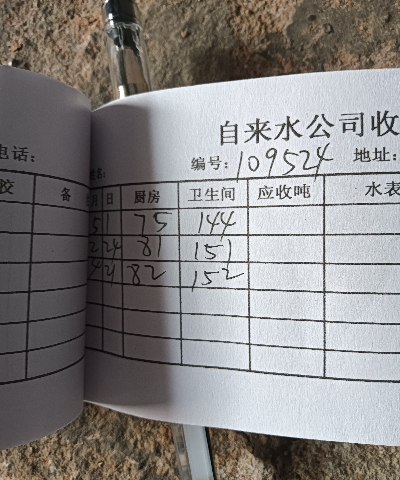 自来水公司收
电话:
编号: 109524 地址:
备
日 厨房 卫生间 应收吨 水表
51 75 144
2 24 81 151
4 21 82 152